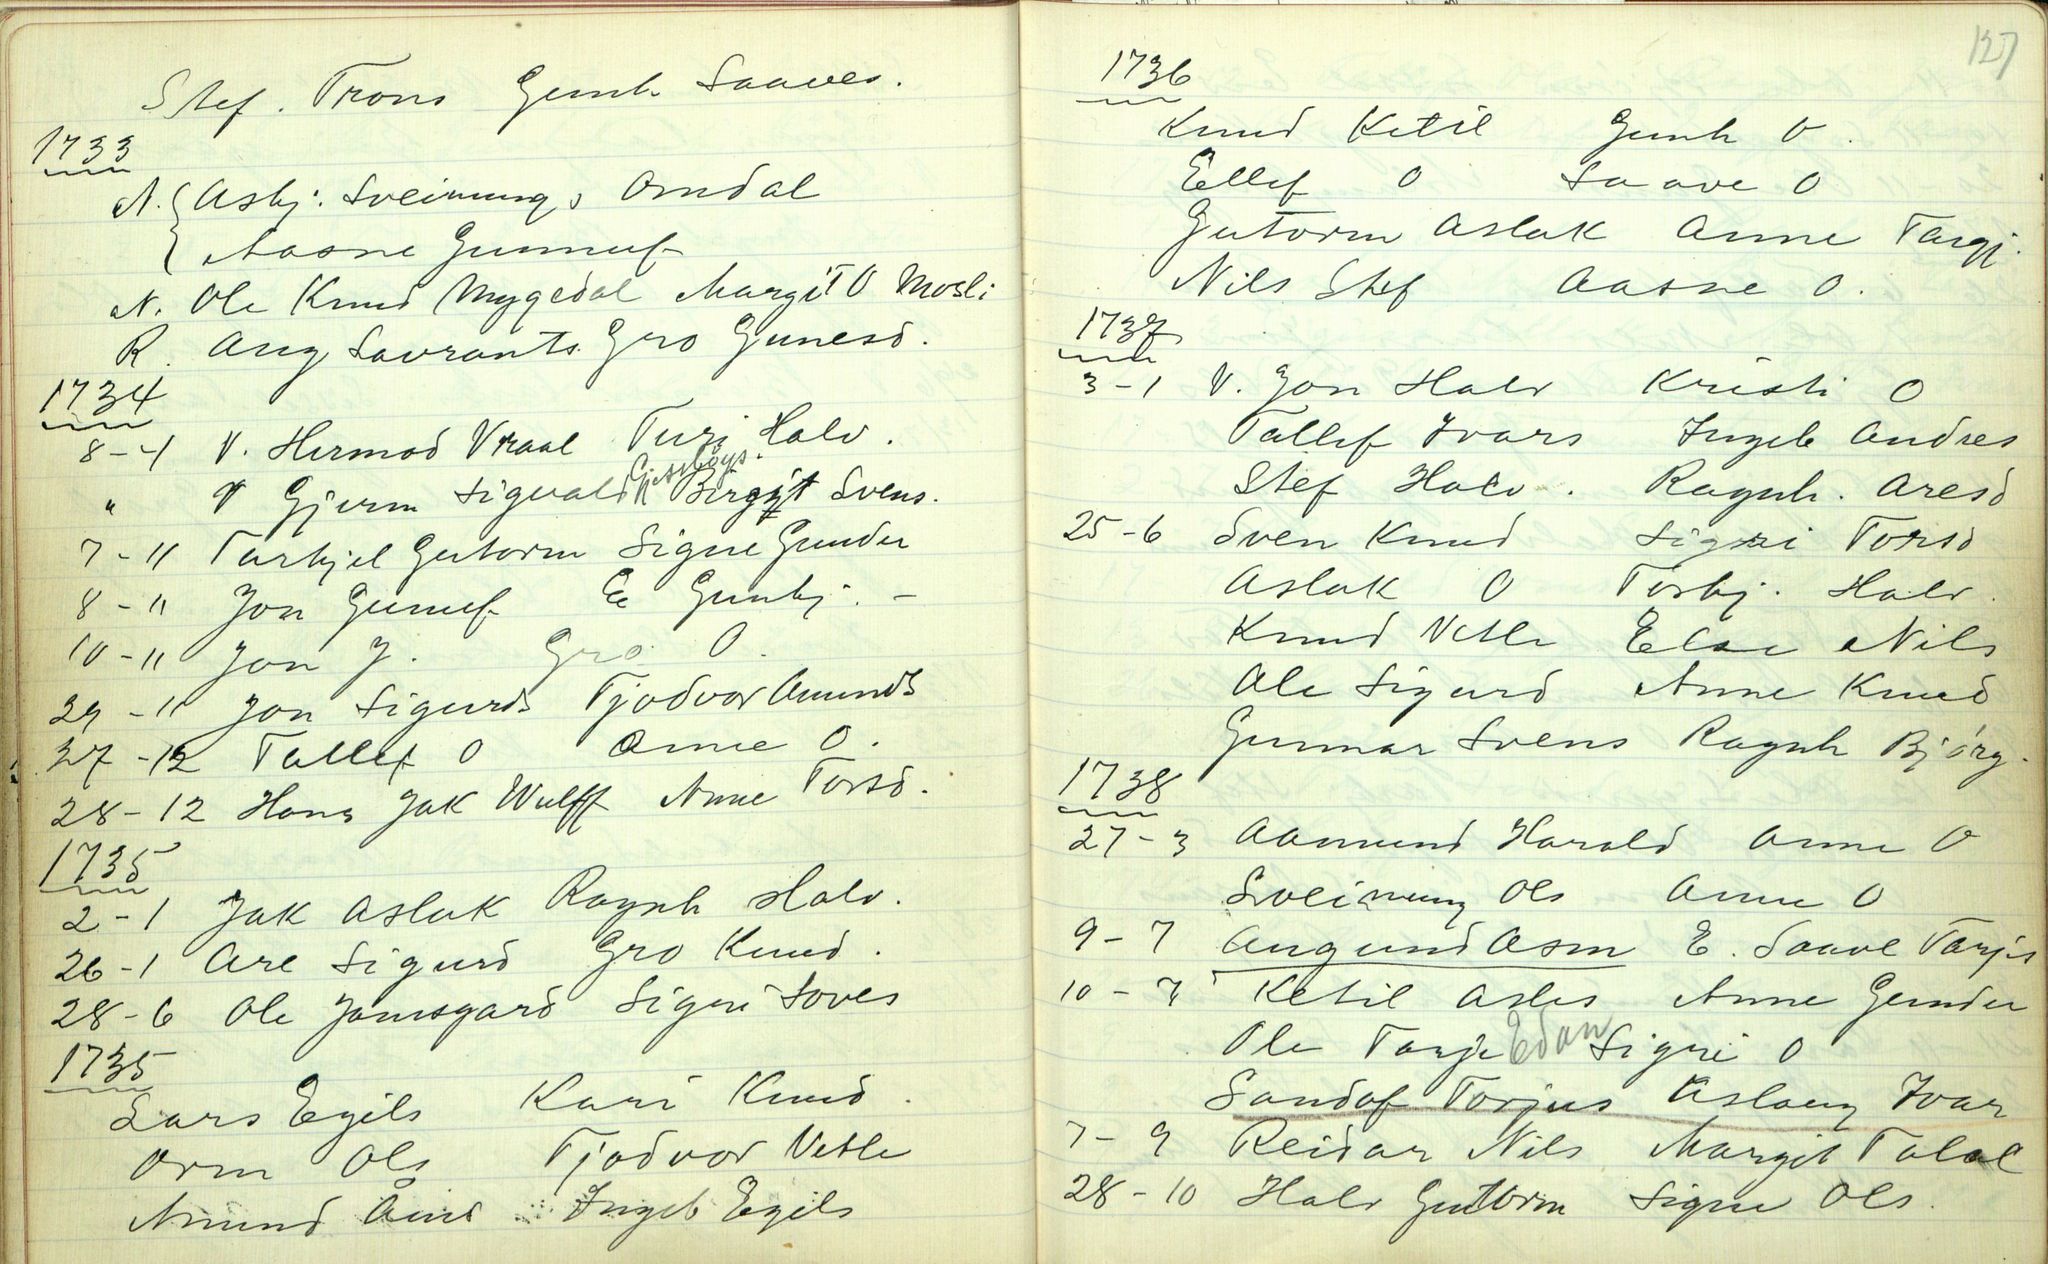 Stef. Trons Gunh Saaves.
1733
N. Asbj. Sveinungs Omdal
Aasne Gunnuf
N. Ole Knud Mygedal Margit O Mosli
R. Aug Savrants. Gro Gunesd.
1734
8-4 V. Hermod Vraal Turi Halv.
" V Gjerm Sigvald Birgit Svens.
7-11 Tarkjel Gutorm Signe Gunder
8-11 Jon Gunuf E Gunbj. -
10-11 Jon J. Gro O.
29-11 Jon Sigurds Tjodvor Amunds
27-12 Tallef O Anne O.
28-12 Hans Jak Wulff Anne Torsd.
1735
2-1 Jak Aslak Ragnh Halv.
26-1 Are Sigurd Gro Knud.
28-6 Ole Jamsgard Sigri Soves
1735
Lars Egils Kari Knud.
Orm Ols Tjodvor Vetle
Amund Amd Ingeb Egils
127
1736
Knud Ketil Gunh O.
Ellef O Saave O
Gutorm Aslak Anne Targj.
Nils Stef Aasne O.
1737
3-1 V. Jon Halv Kristi O
Tallef Ivars Ingeb Andres
Stef Halv. Ragnh. Aresd
25-6 Sven Knud Sigri Torsd
Aslak O Torbj. Halv.
Knud Vetle Else Nils
Ole Sigurd Anne Knud
Gunnar Svens Ragnh Bjørg.
1738
27-3 Aamund Harald Anne O
Sveinung Ols Anne O
9-7 Augund Asm E. Saave Tarjs
10-7 Ketil Asles Anne Gunder
Ole Tarje Edan Sigri O
Sandof Torjus Aslaug Ivar
7-9 Reidar Nils Margit Talal
28-10 Halv Guttorm Signe Ols.